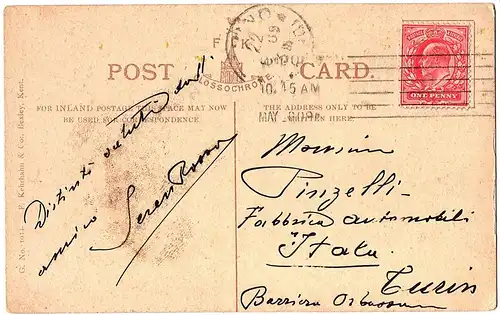 POST CARD.
F. K.
GLOSSOCHROME
FOR INLAND POSTAGE SPACE MAY NOW
BE USED FOR CORRESPONDENCE
THE ADDRESS ONLY TO BE
WRITTEN HERE.
10.15 AM
MAY 6 09
ONE PENNY
G. No. F. Kehrhahn & Co., Bexley, Kent.
Distinti saluti
amico
Monsieur
Pinzelli
Fabbrica automobili
Itala
Turin
Barriera Orbassano